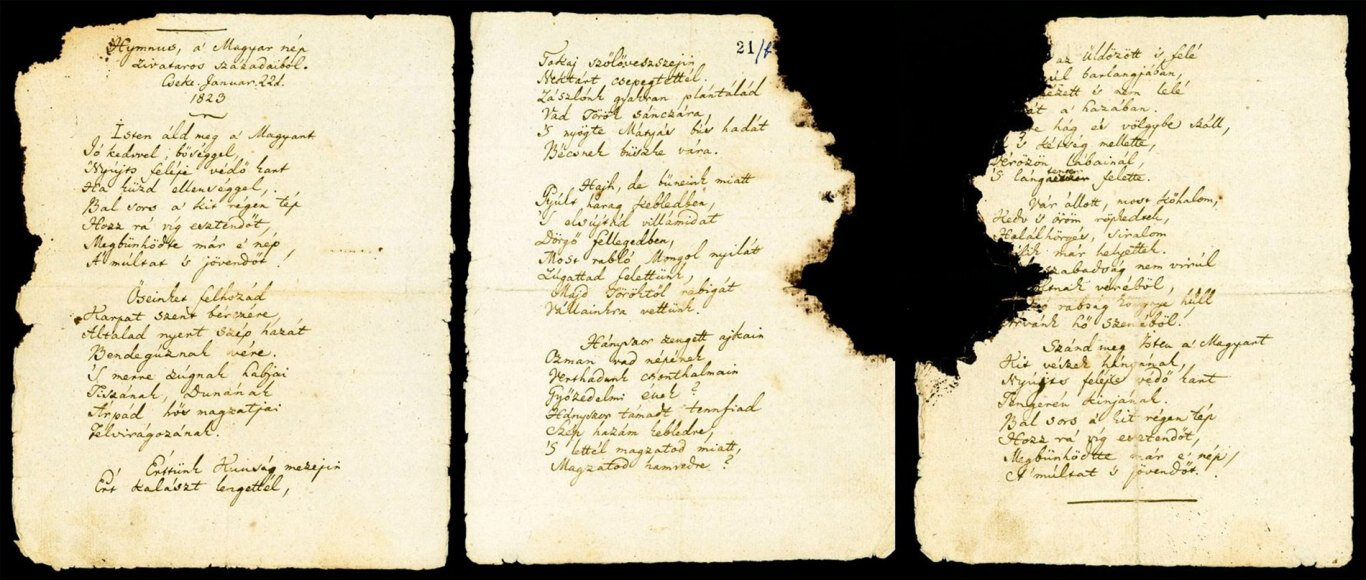 Hymnus, a' Magyar nép
zivataros századaiból.
Cseke. Januar. 22d.
1823
Isten áld meg a' Magyart
Jó kedvvel, bőséggel,
Nyújts feléje védő kart
Ha küzd ellenséggel,
Bal sors a' kit régen tép
Hozz rá víg esztendőt,
Megbűnhödte már e' nép
A' múltat 's jövendőt.
Őseinket felhozád
Kárpát szent bérczére,
Általad nyert szép hazát
Bendegúznak vére.
'S merre zúgnak habjai
Tiszának, Dunának
Árpád hős magzatjai
Felvirágozának.
Értünk Kunság mezején
Ért kalászt lengettél,
21/b
Tokaj szőlővesszejin
Nektárt csepegtettél.
Zászlónk gyakran plántálád
Vad Török sánczára,
'S nyögte Mátyás bús hadát
Bécsnek büszke vára.
Hajh, de bűneink miatt
Gyúlt harag kebledben,
'S elsújtád villámidat
Dörgő fellegedben,
Most rabló Mongol nyilát
Zúgattad felettünk,
Majd Töröktől rabigát
Vállainkra vettünk.
Hányszor zengett ajkain
Ozman vad népének
Vert hadunk csonthalmain
Győzedelmi ének?
Hányszor támadt tennfiad
Szép hazám kebledre,
'S lettél magzatod miatt,
Magzatod hamvedre?
az üldözött 's felé
barlangjában,
nézett 's nem lelé
a' hazában.
hág és völgybe száll,
's kétség mellette,
Vérözön lábainál,
'S lángtenger felette.
Vár állott, most kőhalom,
Kedv 's öröm röpkedtek,
Halálhörgés, siralom
már helyettek.
szabadság nem virúl
véréből,
rabság könnye hull
Árvánk hő szeméből.
Szánd meg Isten a' Magyart
Kit vészek hányának,
Nyújts feléje védő kart
Tengerén kínjának.
Bal sors a' kit régen tép
Hozz rá víg esztendőt,
Megbűnhödte már e' nép
A' múltat 's jövendőt.